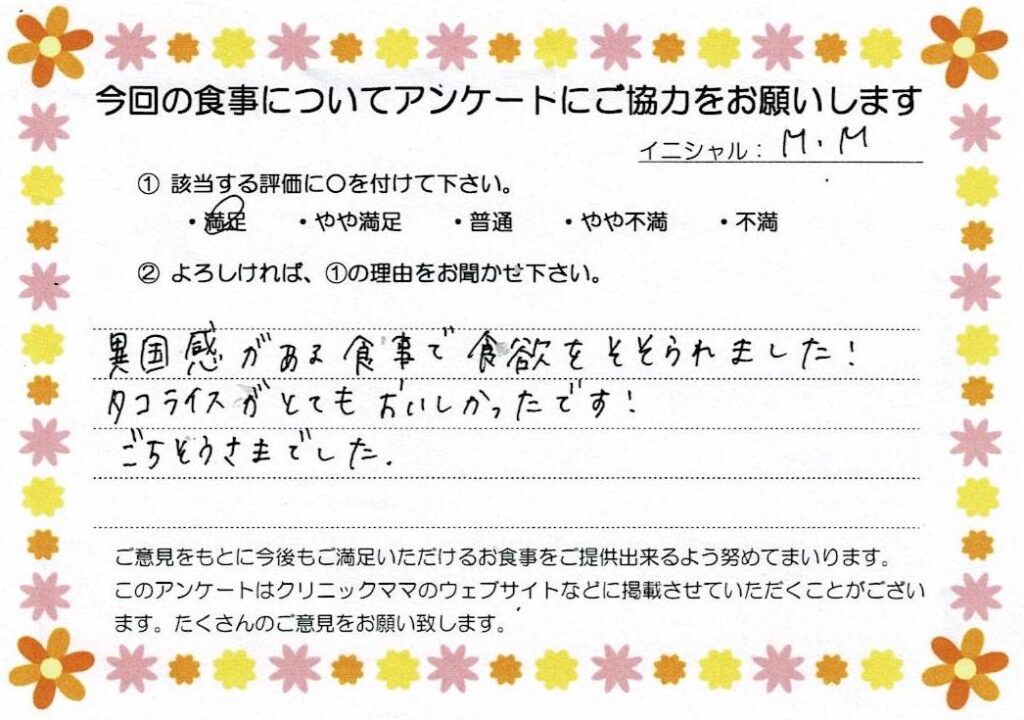 今回の食事についてアンケートにご協力をお願いします
イニシャル： M.M
① 該当する評価に〇を付けて下さい。
・満足 ・やや満足 ・普通 ・やや不満 ・不満
② よろしければ、①の理由をお聞かせ下さい。
異国感がある食事で食欲をそそられました！
タコライスがとてもおいしかったです！
ごちそうさまでした.
ご意見をもとに今後もご満足いただけるお食事をご提供出来るよう努めてまいります。
このアンケートはクリニックママのウェブサイトなどに掲載させていただくことがござい
ます。たくさんのご意見をお願い致します。